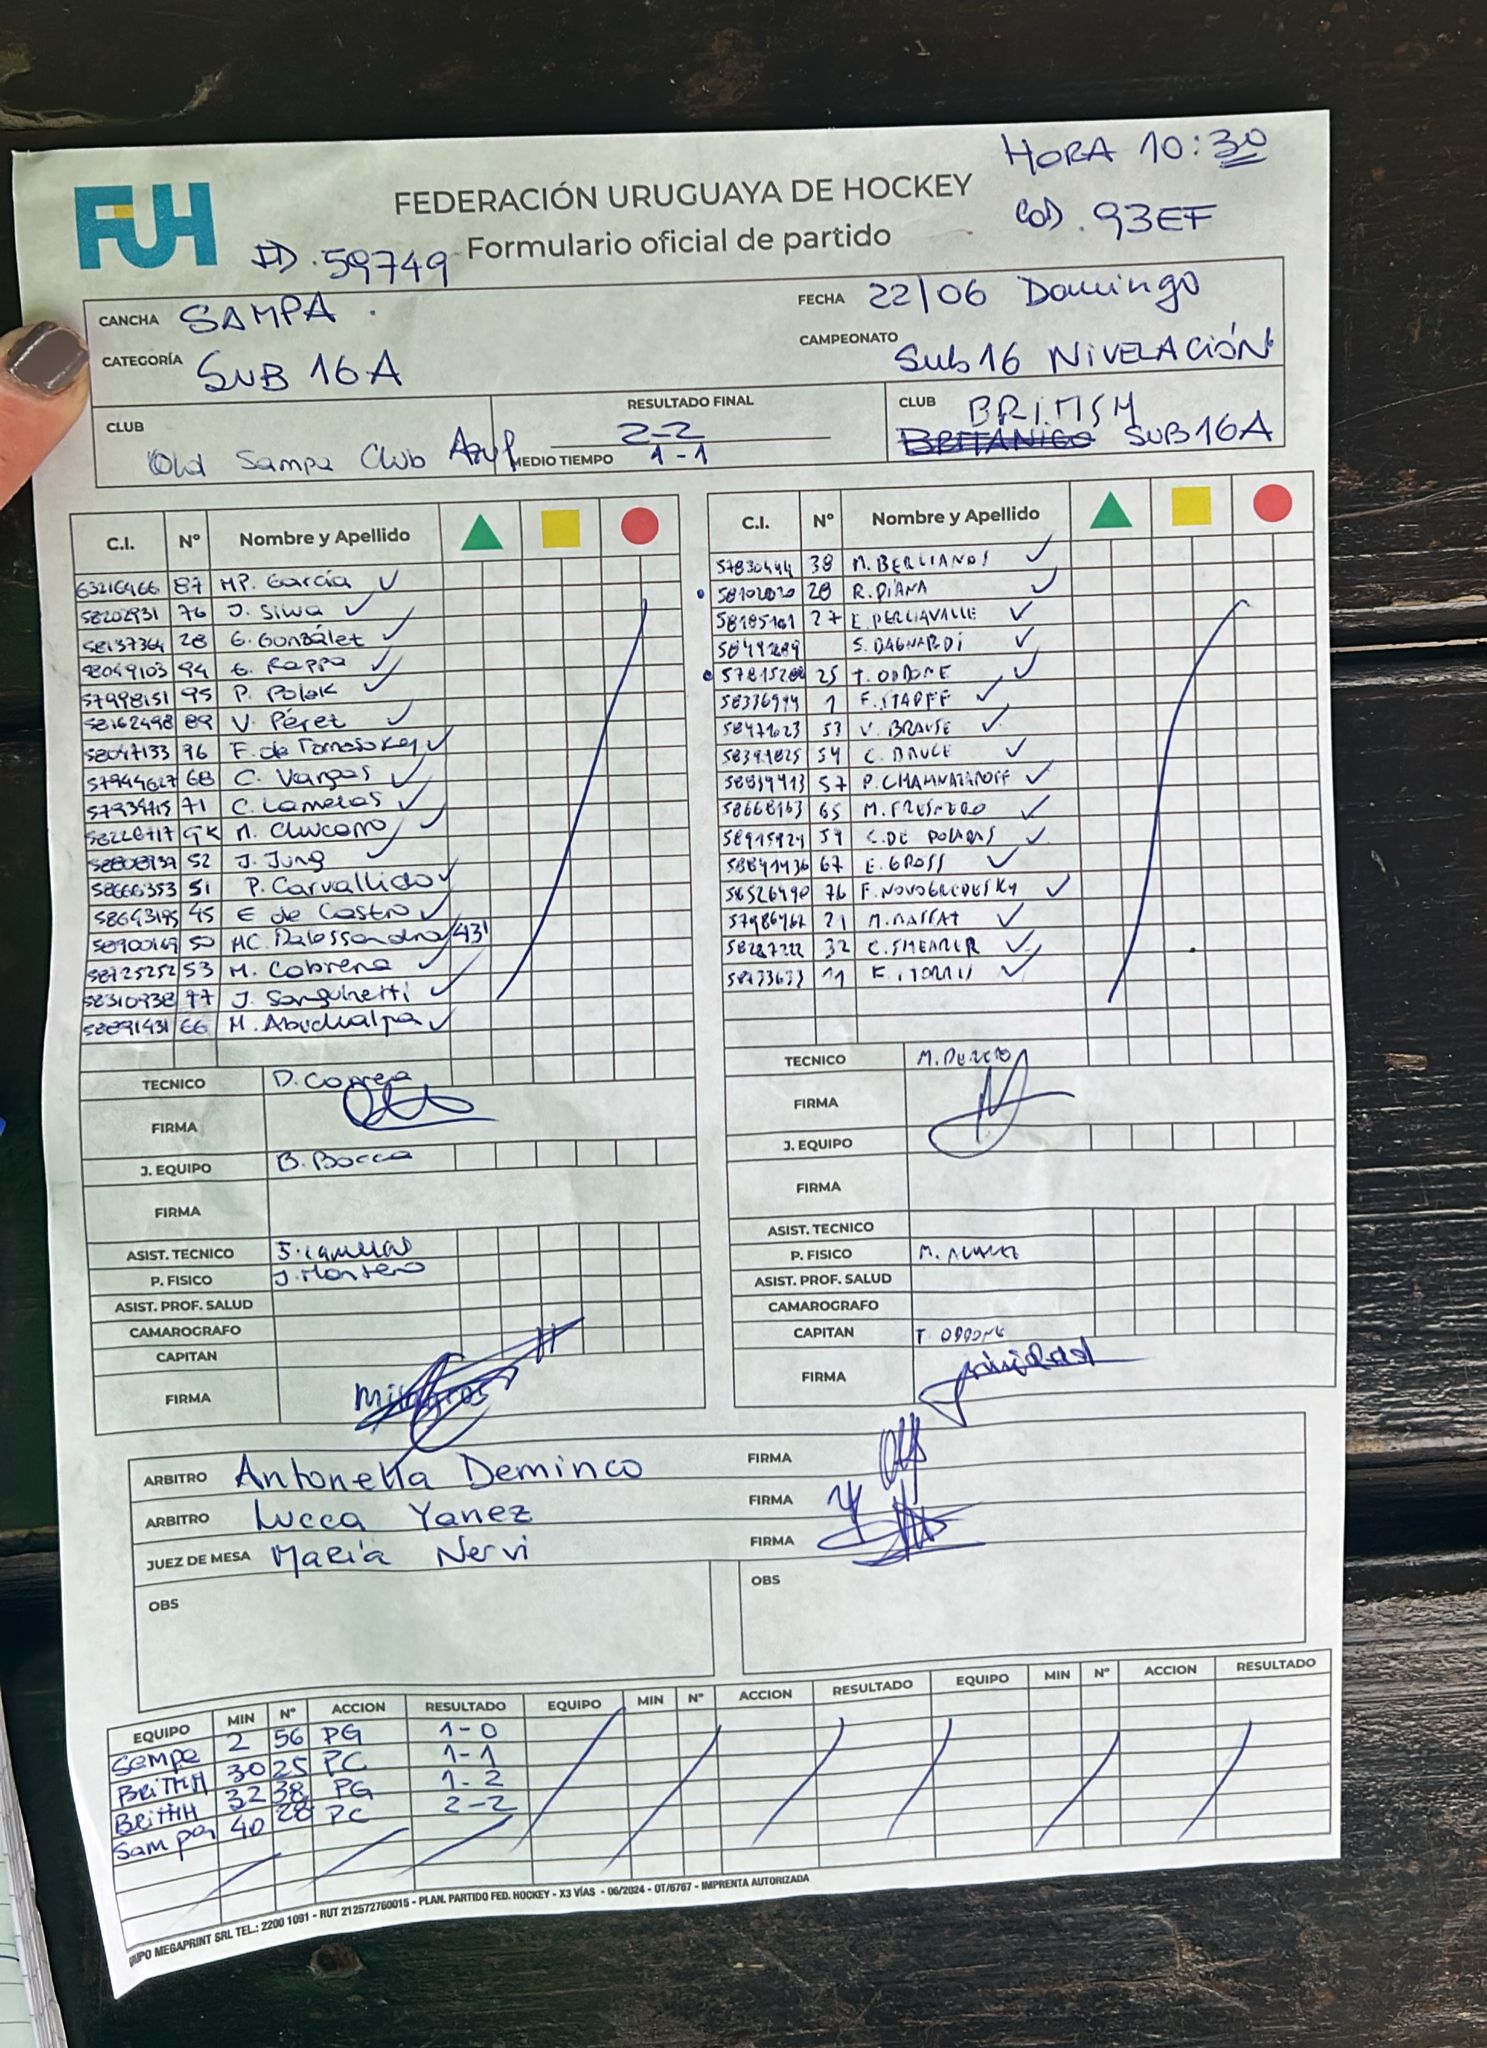 HORA 10:30
FUH
FEDERACIÓN URUGUAYA DE HOCKEY
COD. 93EF
ID. 59749
Formulario oficial de partido
CANCHA SAMPA.
FECHA 22/06 Domingo
CATEGORÍA SUB 16A
CAMPEONATO Sub16 NIVELACIÓN
CLUB Old Sampa Club Azul
RESULTADO FINAL 2-2
MEDIO TIEMPO 1-1
CLUB BRITISH SUB16A
C.I. Nº Nombre y Apellido
63216466 87 MP. García ✓
58202931 76 J. Silva ✓
58137364 28 G. Gonzálet ✓
58049103 94 G. Rappa ✓
57998151 95 P. Polak ✓
58162498 89 V. Péret ✓
58047133 96 F. de ✓
57944627 68 C. Vargas ✓
71 C. Lamelas ✓
GK M. Chucarro ✓
52 J. Jung ✓
58666353 51 P. Carvallido ✓
58643195 45 E de Castro ✓
58900169 50 MC. Dalessandro 43
58725252 53 M. Cabrera ✓
58310938 77 J. Sanguinetti ✓
58891431 66 M. Abuchalpa ✓
TECNICO D. Correa
FIRMA
J. EQUIPO B. Bocca
FIRMA
ASIST. TECNICO
P. FISICO J. Montero
ASIST. PROF. SALUD
CAMAROGRAFO
CAPITAN
FIRMA Milagros
C.I. Nº Nombre y Apellido
57830444 38 M. BERLIANOS ✓
58102020 28 R. DIANA ✓
27 E. PERCIAVALLE ✓
S. BAGNARDI ✓
25 T. ODDONE ✓
58336994 1 F. STAPFF ✓
58471023 53 V. BRAUSE ✓
58391825 54 C. BRUCE ✓
57 P. CHAMNAZAROFF ✓
58668163 65 M. PRESNERO ✓
59 C. DE POSADAS ✓
67 E. GROSS ✓
58526490 76 F. NOVOGREDESKY ✓
21 M. RAFFAT ✓
58287222 32 C. SHEARER ✓
58133633 11 E. STORRIS ✓
TECNICO
FIRMA
J. EQUIPO
FIRMA
ASIST. TECNICO
P. FISICO
ASIST. PROF. SALUD
CAMAROGRAFO
CAPITAN T. ODDONE
FIRMA
ARBITRO Antonella Deminco FIRMA
ARBITRO Lucca Yanez FIRMA
JUEZ DE MESA María Nervi FIRMA
OBS
OBS
EQUIPO MIN Nº ACCION RESULTADO EQUIPO MIN Nº ACCION RESULTADO EQUIPO MIN Nº ACCION RESULTADO
Sampa 2 56 PG 1-0
BRITISH 30 25 PC 1-1
BRITISH 32 38 PG 1-2
Sampa 40 28 PC 2-2
GRUPO MEGAPRINT SRL TEL.: 2200 1091 - RUT 212572760015 - PLAN. PARTIDO FED. HOCKEY - X3 VÍAS - 06/2024 - OT/6767 - IMPRENTA AUTORIZADA